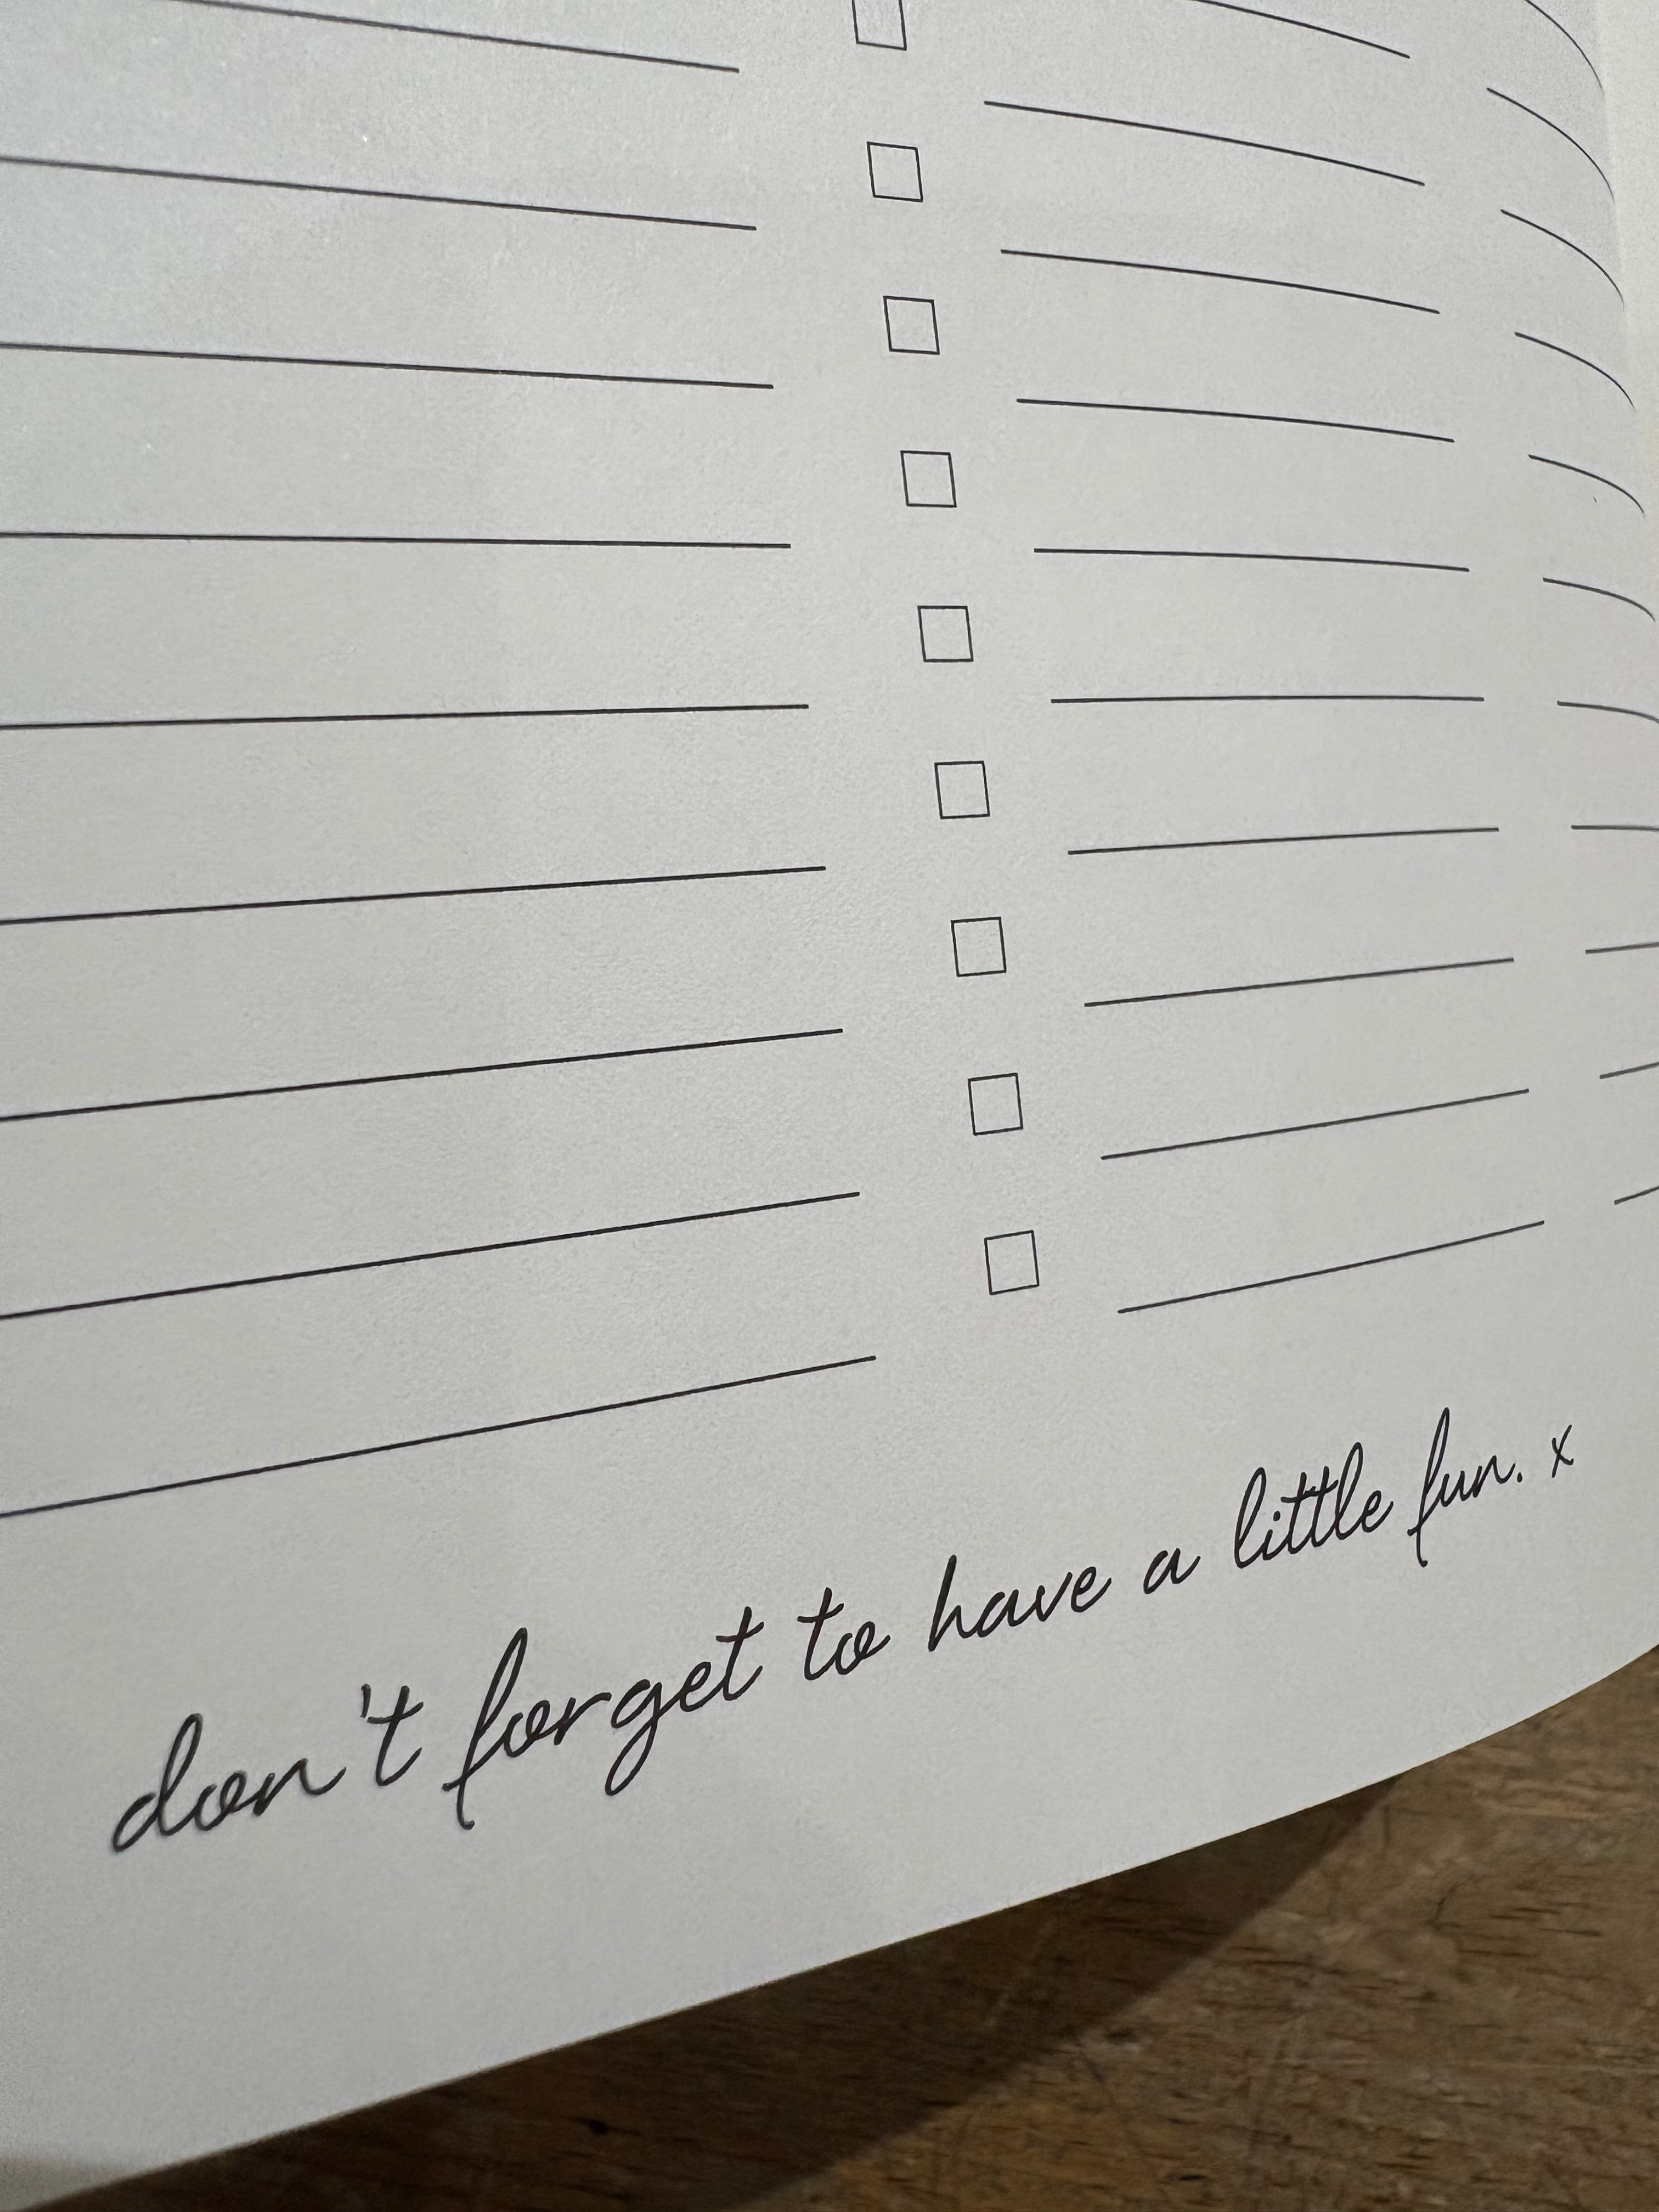 don't forget to have a little fun. x